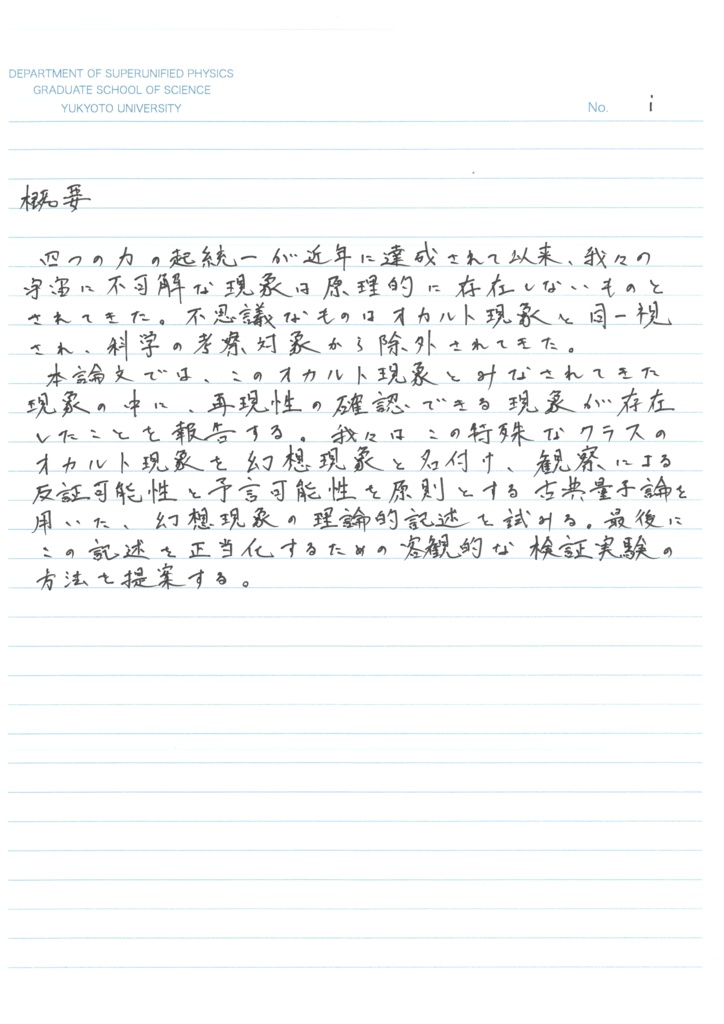 DEPARTMENT OF SUPERUNIFIED PHYSICS
GRADUATE SCHOOL OF SCIENCE
YUKYOTO UNIVERSITY
No. i
概要
四つの力の起統一が近年に達成されて以来、我々の
宇宙に不可解な現象は原理的に存在しないものと
されてきた。不思議なものはオカルト現象と同一視
され、科学の考察対象から除外されてきた。
本論文では、このオカルト現象とみなされてきた
現象の中に、再現性の確認できる現象が存在
したことを報告する。我々はこの特殊なクラスの
オカルト現象を幻想現象と名付け、観察による
反証可能性と予言可能性を原則とする古典量子論を
用いた、幻想現象の理論的記述を試みる。最後に
この記述を正当化するための客観的な検証実験の
方法を提案する。